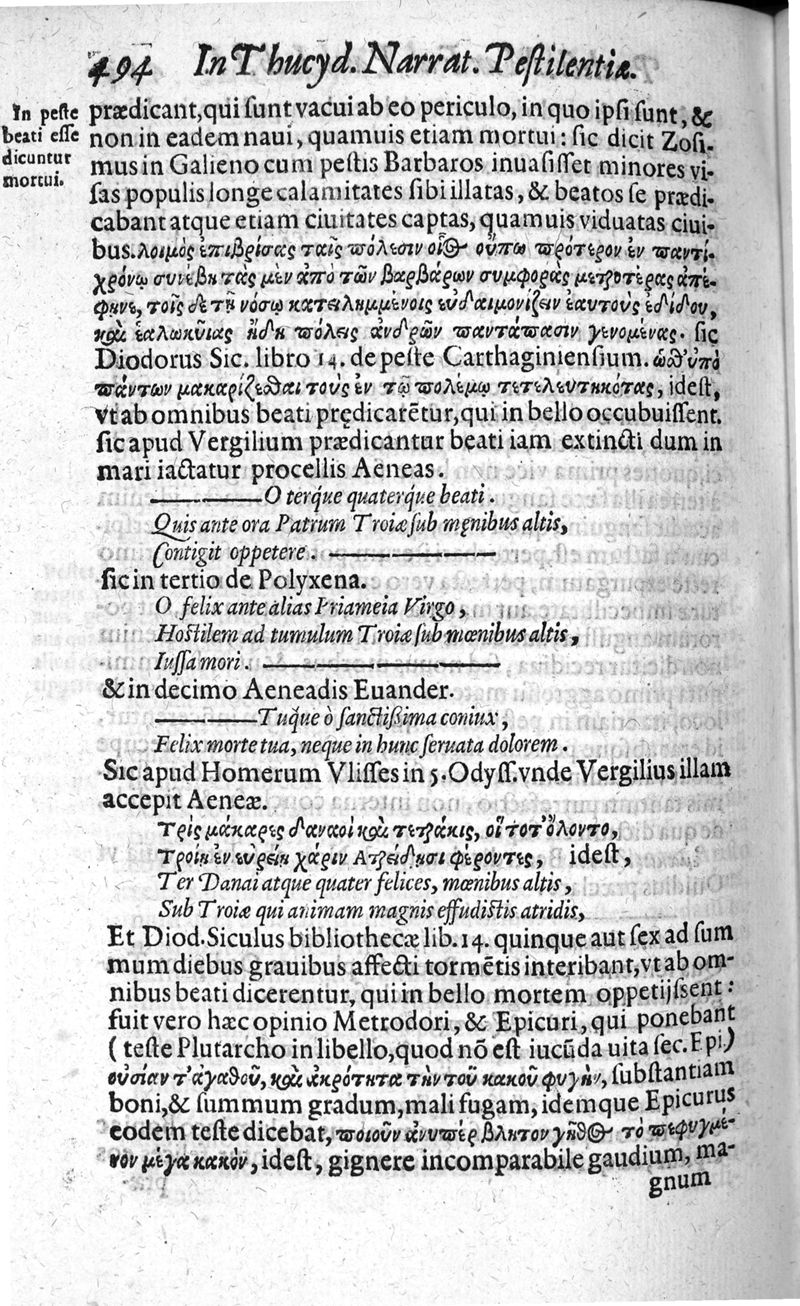 494 In Thucyd. Narrat. Pestilentiæ.
In peste
beati esse
dicuntur
mortui.
prædicant,qui sunt vacui ab eo periculo, in quo ipsi sunt, &
non in eadem naui, quamuis etiam mortui: sic dicit Zosi-
mus in Galieno cum pestis Barbaros inuasisset minores vi-
sas populis longe calamitates sibi illatas, & beatos se prædi-
cabant atque etiam ciuitates captas, quamuis viduatas ciui-
bus. λοιμὸς ἐπιβρίσας ταῖς πόλεσιν οἷος οὔπω πρότερον ἐν παντὶ
χρόνῳ συνέβη τὰς μὲν ἀπὸ τῶν βαρβάρων συμφορὰς μετριοτέρας ἀπέ-
φηνε, τοῖς δὲ τῇ νόσῳ κατειλημμένοις εὐδαιμονίζειν ἑαυτοὺς ἐδίδου,
καὶ ἑαλωκυίας ἤδη πόλεις ἀνδρῶν παντάπασιν γενομένας. sic
Diodorus Sic. libro 14. de peste Carthaginiensium. ὡσθ' ὑπὸ
πάντων μακαρίζεσθαι τοὺς ἐν τῷ πολέμῳ τετελευτηκότας, idest,
vt ab omnibus beati prędicarẽtur, qui in bello occubuissent.
sic apud Vergilium prædicantur beati iam extincti dum in
mari iactatur procellis Aeneas.
O terq́ue quaterq́ue beati.
Quis ante ora Patrum Troiæ sub męnibus altis,
Contigit oppetere.
sic in tertio de Polyxena.
O felix ante alias Priameia Virgo,
Hostilem ad tumulum Troiæ sub mœnibus altis,
Iussa mori.
& in decimo Aeneadis Euander.
Tuq́ue ò sanctißima coniux,
Felix morte tua, neque in hunc seruata dolorem.
Sic apud Homerum Vlisses in 5. Odyss. vnde Vergilius illam
accepit Aeneæ.
Τρὶς μάκαρες δαναοὶ καὶ τετράκις, οἳ τότ' ὄλοντο,
Τροίῃ ἐν εὐρείῃ χάριν Ἀτρείδῃσι φέροντες, idest,
Ter Danai atque quater felices, mœnibus altis,
Sub Troiæ qui animam magnis effudistis atridis,
Et Diod. Siculus bibliothecæ lib. 14. quinque aut sex ad sum
mum diebus grauibus affecti tormẽtis interibant, vt ab om-
nibus beati dicerentur, qui in bello mortem oppetijssent:
fuit vero hæc opinio Metrodori, & Epicuri, qui ponebant
(teste Plutarcho in libello, quod nõ est iucũda uita sec. Epi.)
οὐσίαν τ'ἀγαθοῦ, καὶ ἀκρότητα τὴν τοῦ κακοῦ φυγὴν, substantiam
boni, & summum gradum, mali fugam, idemque Epicurus
eodem teste dicebat, ποιοῦν ἀνυπέρβλητον γῆθος τὸ πεφυγμέ-
νον μέγα κακὸν, idest, gignere incomparabile gaudium, ma-
gnum